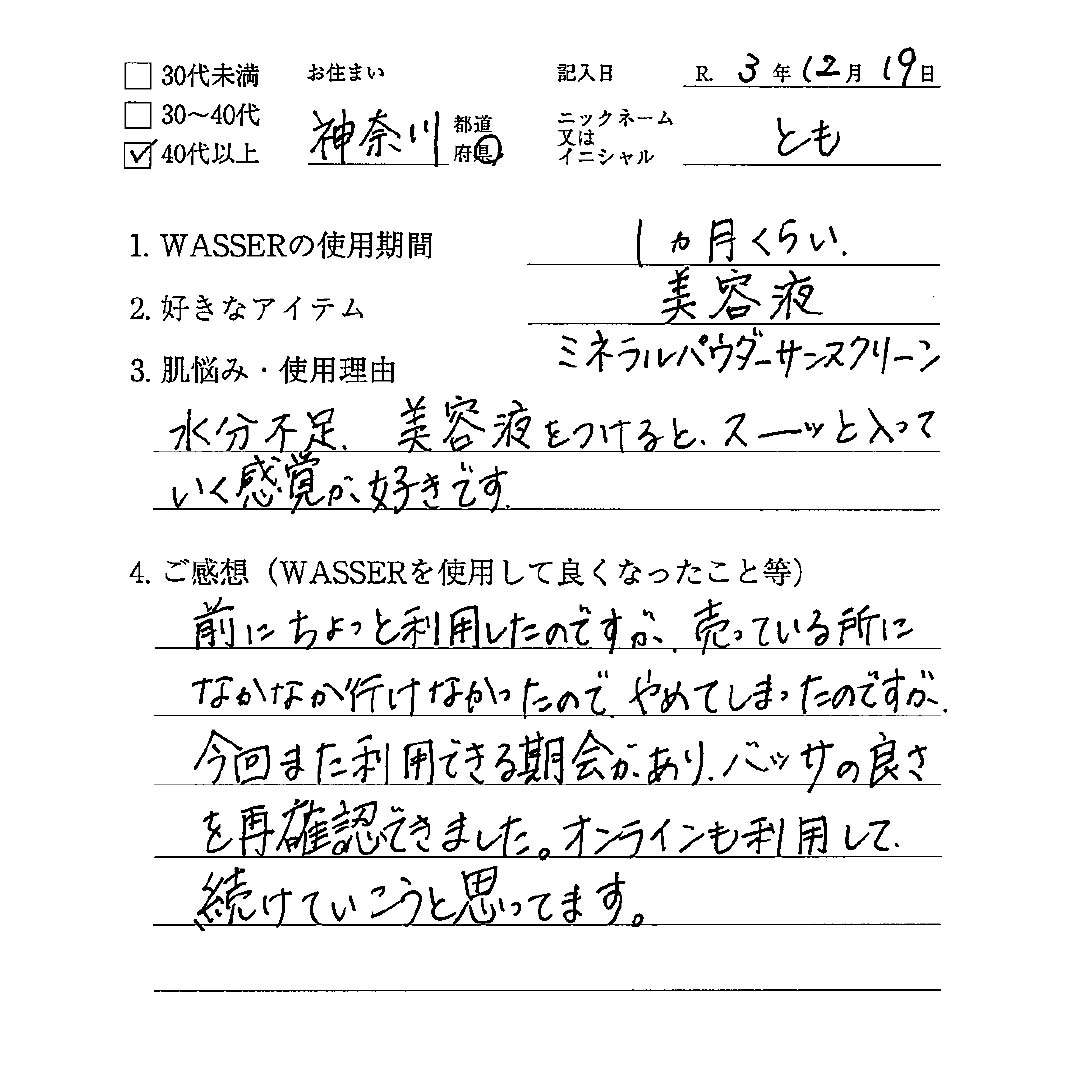 □ 30代未満 お住まい 記入日 R. 3年12月19日
□ 30～40代 神奈川 都道府県 ニックネーム又はイニシャル とも
☑ 40代以上
1. WASSERの使用期間 1ヵ月くらい.
2. 好きなアイテム 美容液
ミネラルパウダーサンスクリーン
3. 肌悩み・使用理由
水分不足. 美容液をつけると、スーッと入って
いく感覚が、好きです.
4. ご感想（WASSERを使用して良くなったこと等）
前にちょっと利用したのですが、売っている所に
なかなか行けなかったので、やめてしまったのですが、
今回また利用できる期会があり、バッサの良さ
を再確認できました。オンラインも利用して、
続けていこうと思ってます。